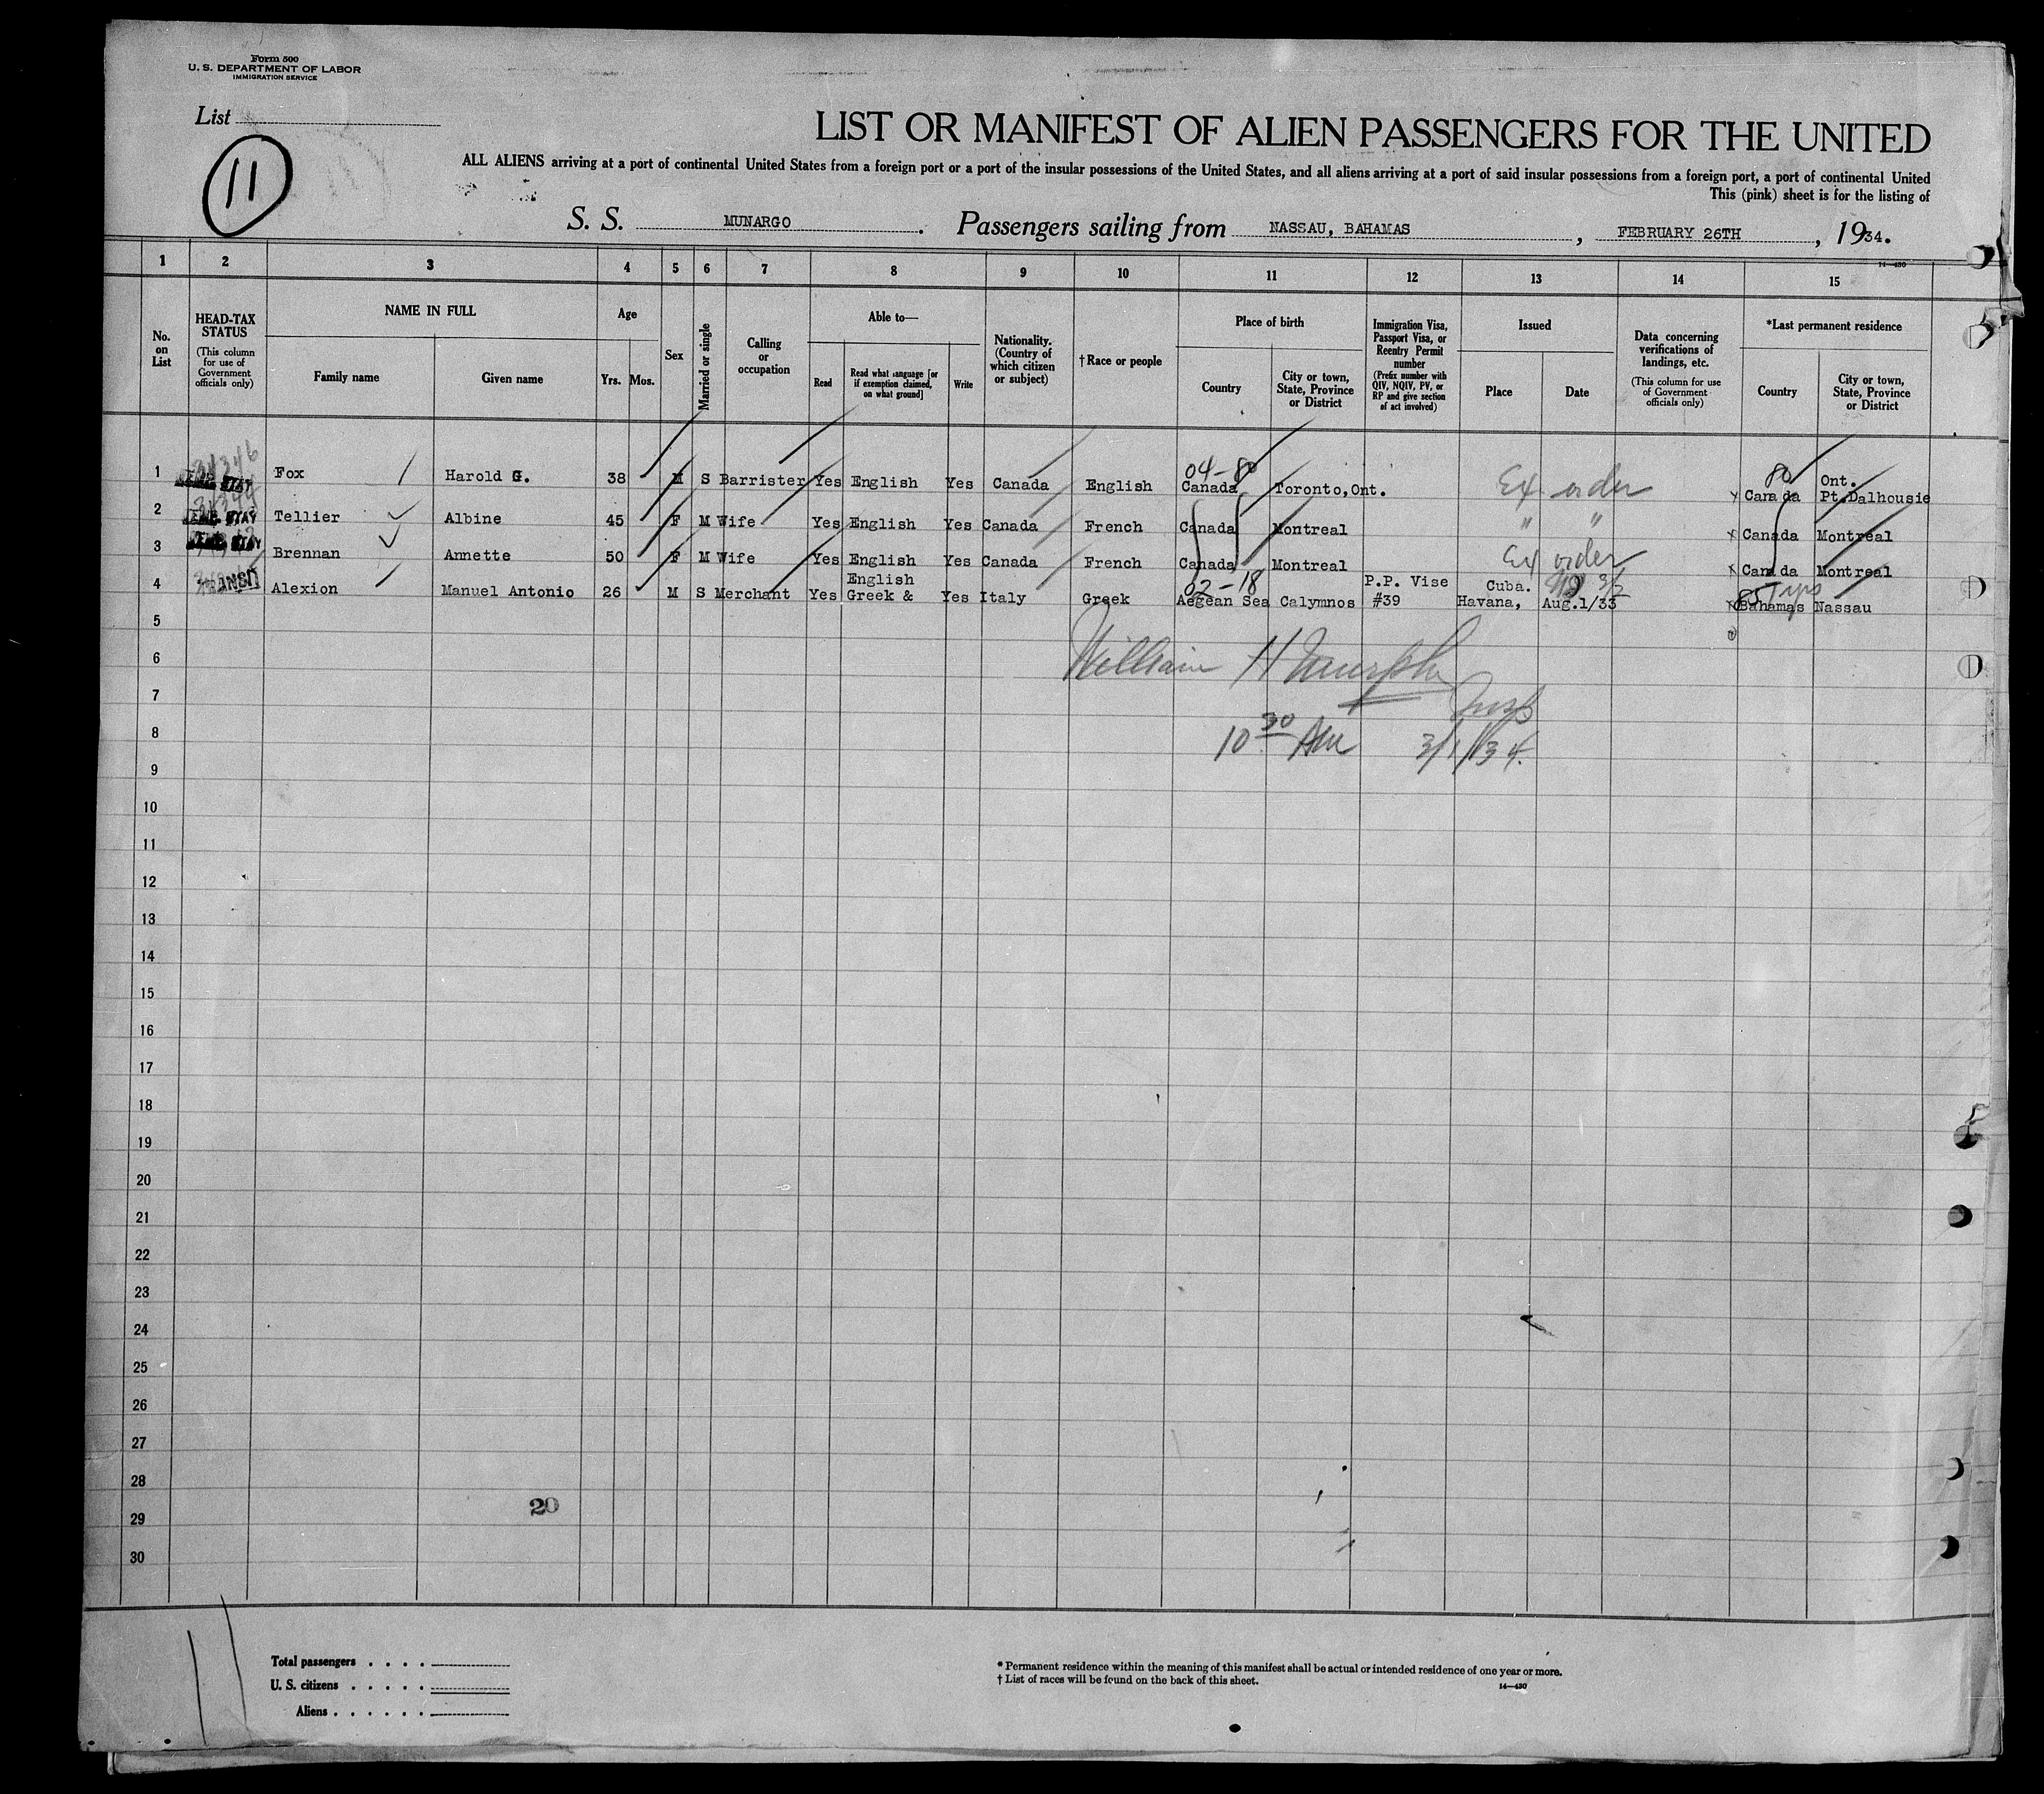 Form 500
U. S. DEPARTMENT OF LABOR
IMMIGRATION SERVICE
List
11
LIST OR MANIFEST OF ALIEN PASSENGERS FOR THE UNITED
ALL ALIENS arriving at a port of continental United States from a foreign port or a port of the insular possessions of the United States, and all aliens arriving at a port of said insular possessions from a foreign port, a port of continental United
This (pink) sheet is for the listing of
S. S. MUNARGO. Passengers sailing from NASSAU, BAHAMAS, FEBRUARY 26TH, 1934.
14—430
1 2 3 4 5 6 7 8 9 10 11 12 13 14 15
No. on List
HEAD-TAX STATUS (This column for use of Government officials only)
NAME IN FULL
Family name Given name
Age
Yrs. Mos.
Sex
Married or single
Calling or occupation
Able to—
Read Read what language [or if exemption claimed, on what ground] Write
Nationality. (Country of which citizen or subject)
† Race or people
Place of birth
Country City or town, State, Province or District
Immigration Visa, Passport Visa, or Reentry Permit number (Prefix number with QIV, NQIV, PV, or RP and give section of act involved)
Issued
Place Date
Data concerning verifications of landings, etc. (This column for use of Government officials only)
*Last permanent residence
Country City or town, State, Province or District
04-80 80 Ont.
1 STAY Fox Harold G. 38 M S Barrister Yes English Yes Canada English Canada Toronto, Ont. Ex order Canada Pt. Dalhousie
2 STAY Tellier Albine 45 F M Wife Yes English Yes Canada French Canada Montreal " " Canada Montreal
3 STAY Brennan Annette 50 F M Wife Yes English Yes Canada French Canada Montreal Ex order Canada Montreal
English 02-18 P.P. Vise Cuba. 3/2 85
4 TRANSIT Alexion Manuel Antonio 26 M S Merchant Yes Greek & Yes Italy Greek Aegean Sea Calymnos #39 Havana, Aug.1/33 Bahamas Nassau
5
6 William H Murphy
7 Insp
8 10 30 AM 3/1/34.
9
10
11
12
13
14
15
16
17
18
19
20
21
22
23
24
25
26
27
28
20
29
30
11
Total passengers . . . .
U. S. citizens . . . . .
Aliens . . . . . .
* Permanent residence within the meaning of this manifest shall be actual or intended residence of one year or more.
† List of races will be found on the back of this sheet.
14—430